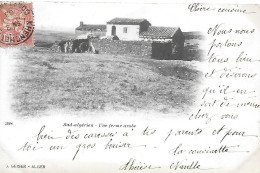 Chère cousine
Nous nous
portons
tous bien
et désirons
qu'il en
soit de même
chez vous
288
Sud-algérien - Une ferme arabe
bien des caresses à tes parents et pour
toi un gros baiser
ta cousinette
J. GEISER - ALGER